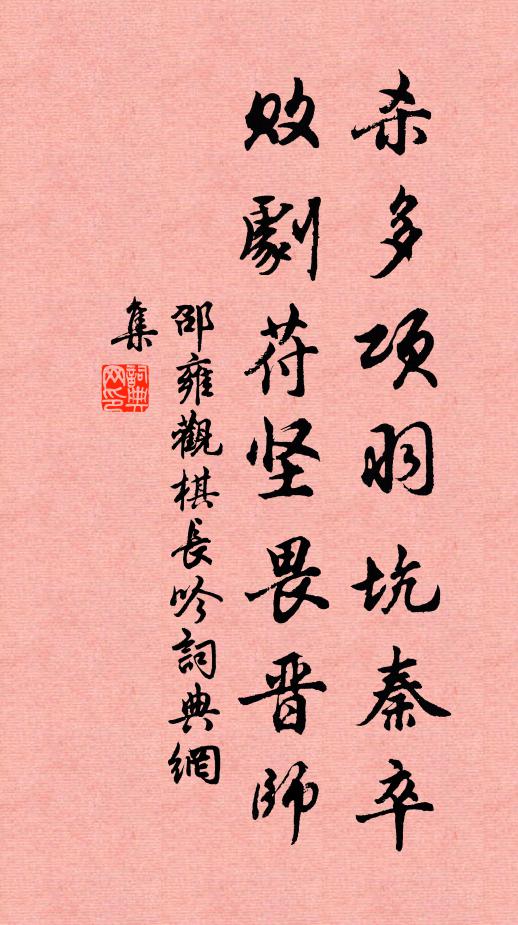 杀多项羽坑秦卒
败劇苻坚畏晋師
邵雍觀棋長吟詞典網
集
詞典
网印